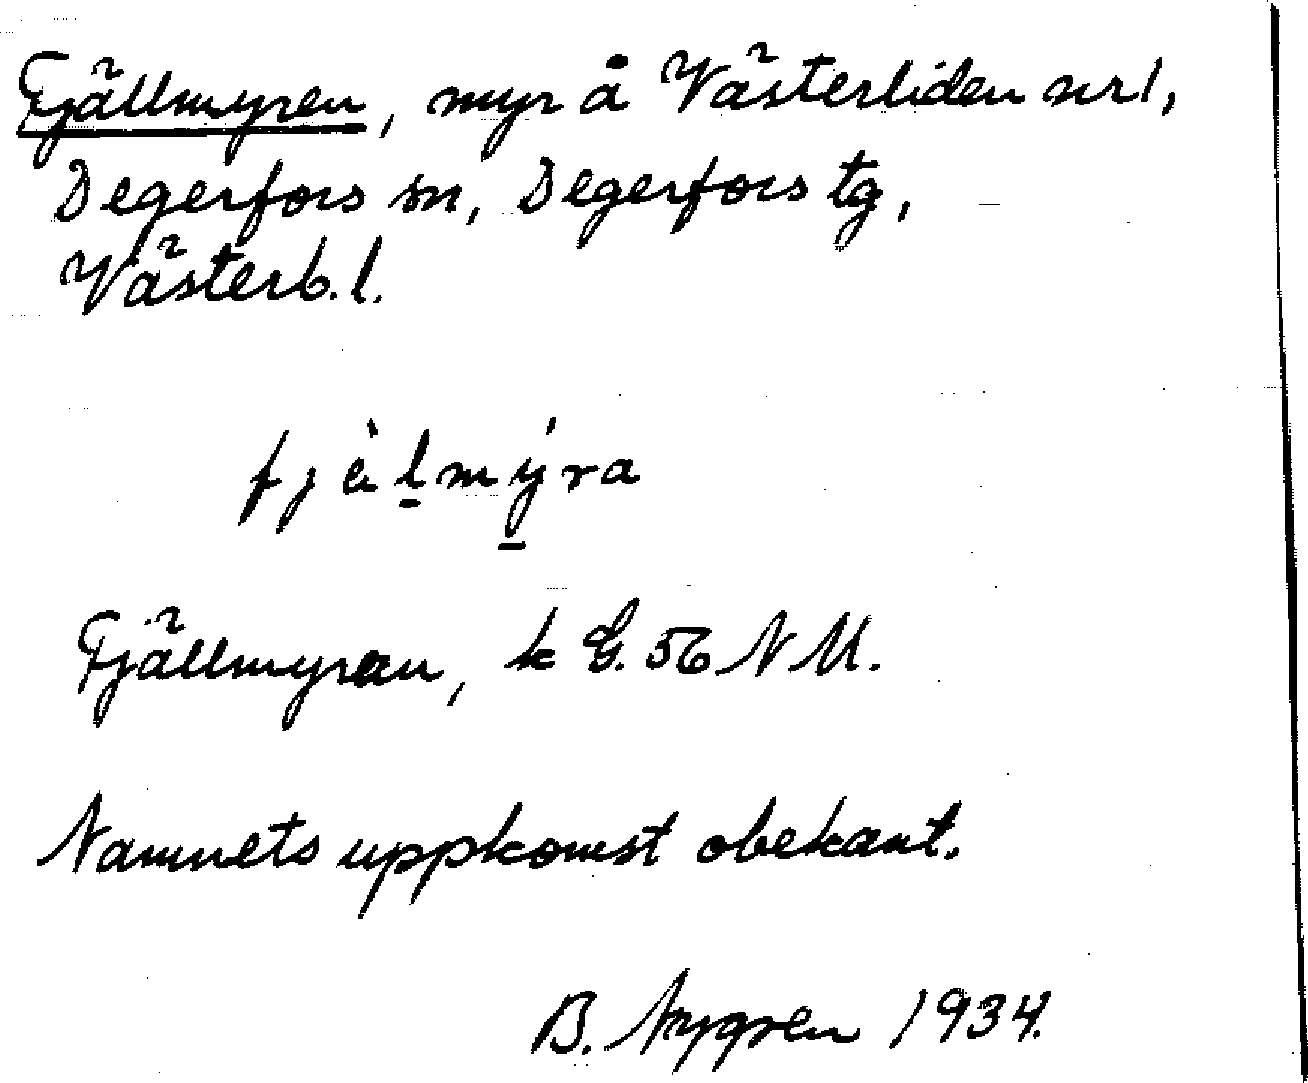 Fjällmyren, myr å Västerliden nr 1,
Degerfors sn, Degerfors tg,
Västerb. l.
fjèlmýra
Fjällmyran, k G. 56 N M.
Namnets uppkomst obekant.
B. Nygren 1934.